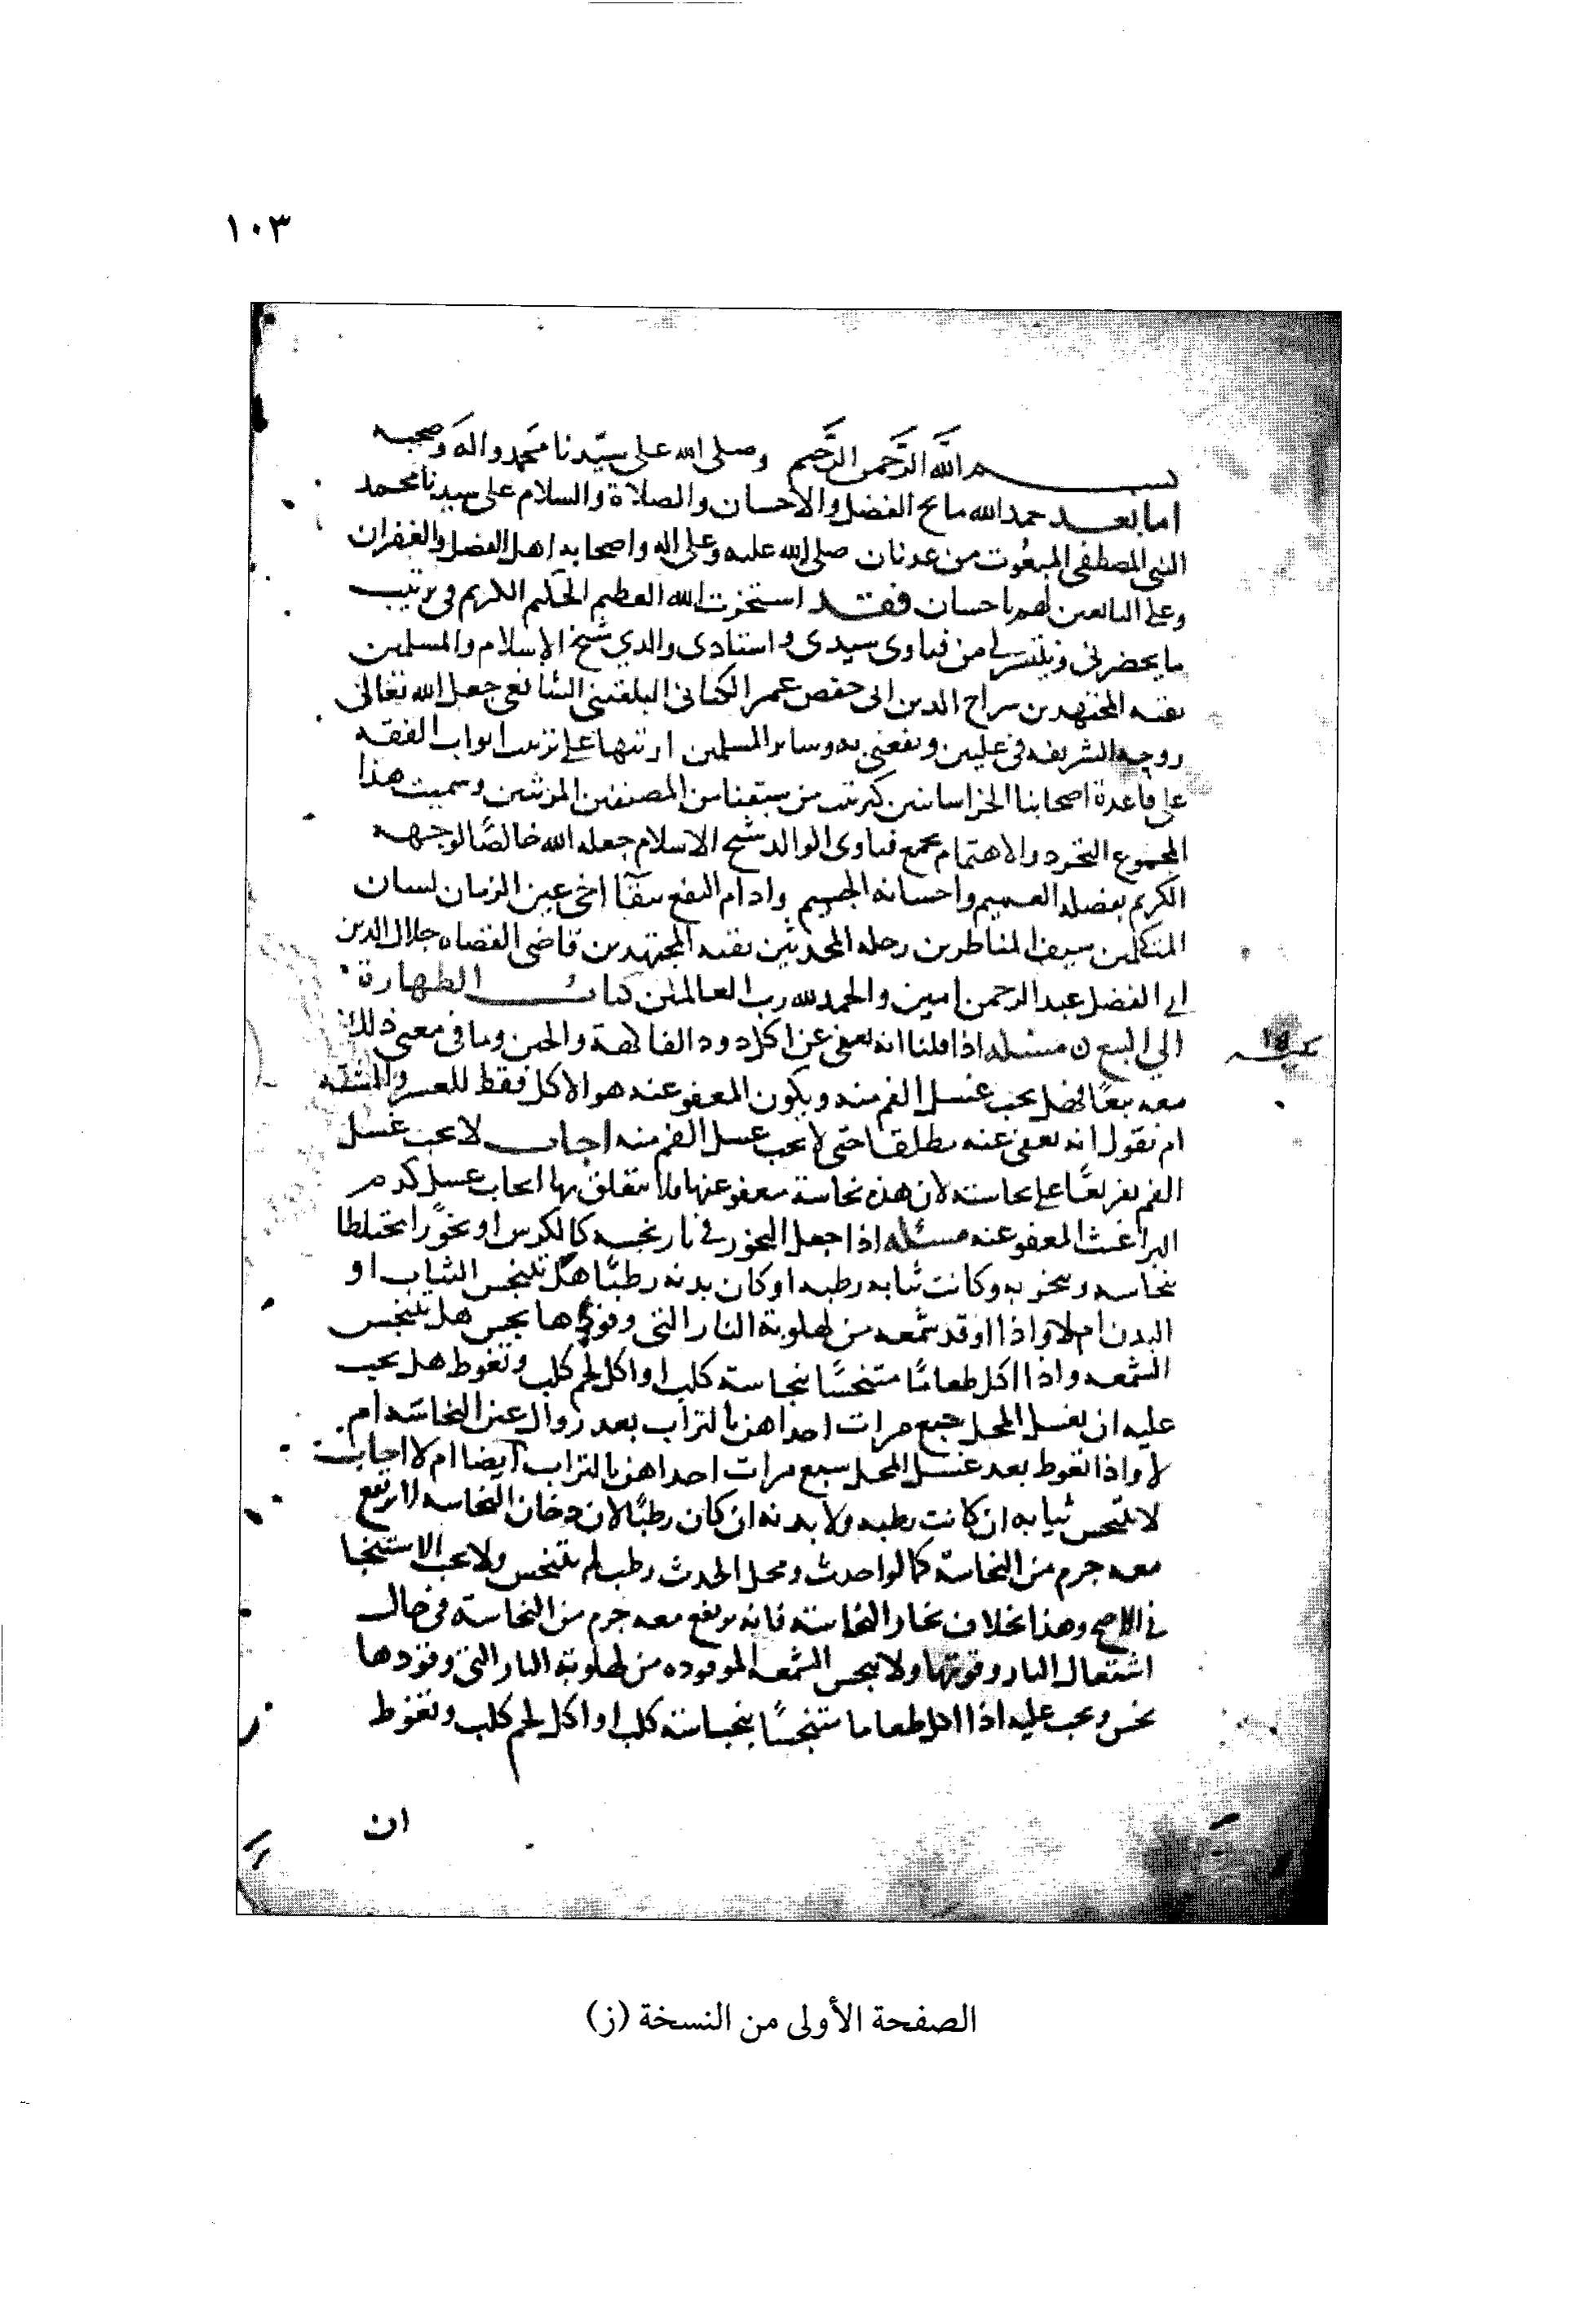 ١٠٣
بسم الله الرحمن الرحيم وصلى الله على سيدنا محمد واله وصحبه
اما بعد حمد الله مانح الفضل والاحسان والصلاة والسلام على سيدنا محمد
النبي المصطفى المبعوث من عدنان صلى الله عليه وعلى اله واصحابه اهل الفضل والغفران
وعلى التابعين لهم باحسان فقد استخرت الله العظيم الحكيم الكريم في ترتيب
ما يحضرني ويتيسر لي من فتاوى سيدي واستادى والدي شيخ الاسلام والمسلمين
بقية المجتهدين سراج الدين ابى حفص عمر الكناني البلقيني الشافعي جعل الله تعالى
روحه الشريفه في عليين ونفعني به وساير المسلمين ارتبها على ترتيب ابواب الفقه
على قاعدة اصحابنا الخراسانيين كترتيب من سبقنا من المصنفين المرتبين وسميت هذا
المجموع التجرد والاهتمام بجمع فتاوى الوالد شيخ الاسلام جعله الله خالصًا لوجهه
الكريم بفضله العميم واحسانه الجسيم وادام النفع ببقآ اخي عين الزمان لسان
المتكلمين سيف المناظرين رحله المحدثين بقيه المجتهدين قاضي القضاه جلال الدين
ابى الفضل عبد الرحمن امين والحمد لله رب العالمين كتاب الطهارة
الي البيع مسئله اذا قلنا انه يعفى عن اكل دود الفاكهة والجبن وما في معنى ذلك
معه تبعًا فهل يجب غسل الفم منه ويكون المعفو عنه هو الاكل فقط للعسر والمشقه
ام نقول انه يعفى عنه مطلقا حتى لا يجب غسل الفم منه اجاب لا يجب غسل
الفم تفريعًا على نجاسته لان هذه نجاسة معفو عنها فلا يتعلق بها ايجاب غسل كدم
البراغيث المعفو عنه مسئله اذا جعل البخور في نار نجسه كالكرس او بخورًا مختلطا
بنجاسه وتبخر به وكانت ثيابه رطبه او كان بدنه رطبًا هل تتنجس الثياب او
البدن ام لا واذا اوقد شمعه من لهلوبة النار التي وقودها نجس هل تتنجس
الشمعه واذا اكل طعامًا متنجسًا بنجاسة كلب او اكل لحم كلب وتغوط هل يجب
عليه ان يغسل المحل سبع مرات احداهن بالتراب بعد زوال عين النجاسه ام
لا واذا تغوط بعد غسل المحل سبع مرات احداهن بالتراب ايضا ام لا اجاب
لا تتنجس ثيابه ان كانت رطبه ولا بدنه ان كان رطبًا لان دخان النجاسه لا يرتفع
معه جرم من النجاسة كما لو احدث ومحل الحدث رطب لم يتنجس ولا يجب الاستنجا
في الاصح وهذا بخلاف بخار النجاسه فانه يرتفع معه جرم من النجاسة في حال
اشتعال النار وقوتها ولا تنجس الشمعه الموقوده من لهلوبة النار التي وقودها
نجس ويجب عليه اذا اكل طعاما متنجسًا بنجاسة كلب او اكل لحم كلب وتغوط
ان
الصفحة الأولى من النسخة (ز)